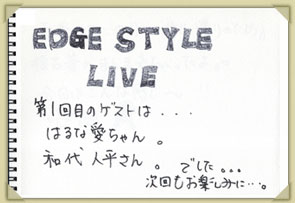 EDGE STYLE
LIVE
第1回目のゲストは...
はるな愛ちゃん。
和代人平さん。でした。。。
次回もお楽しみに…。